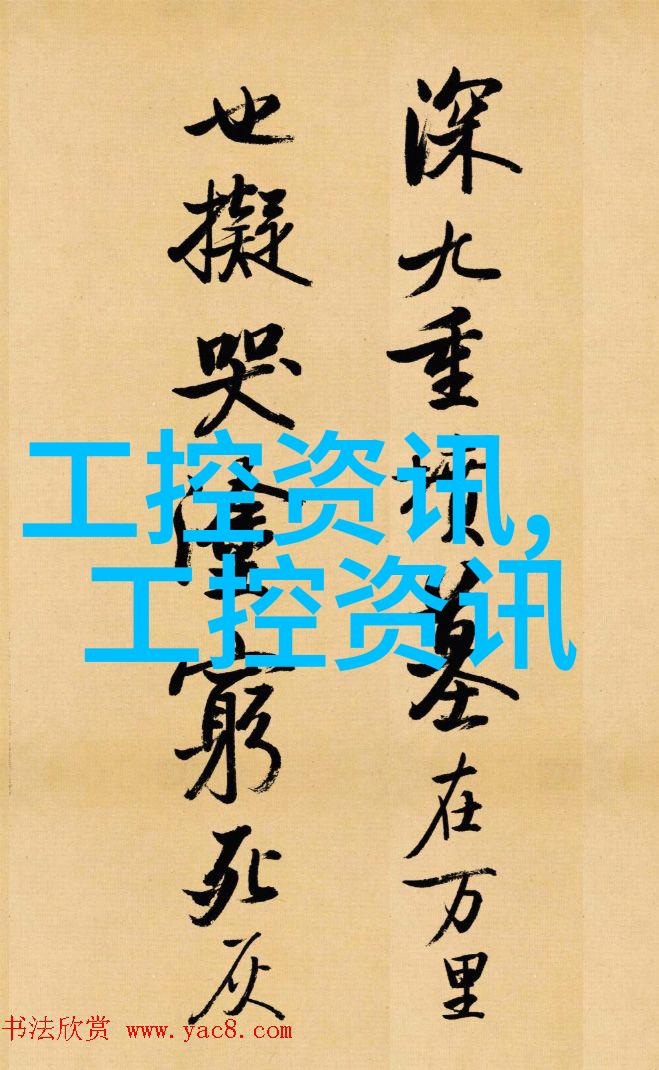 深九重墳墓在万里
也擬哭塗窮死灰
工控资讯,
工控资讯
书法欣赏 www.yac8.com